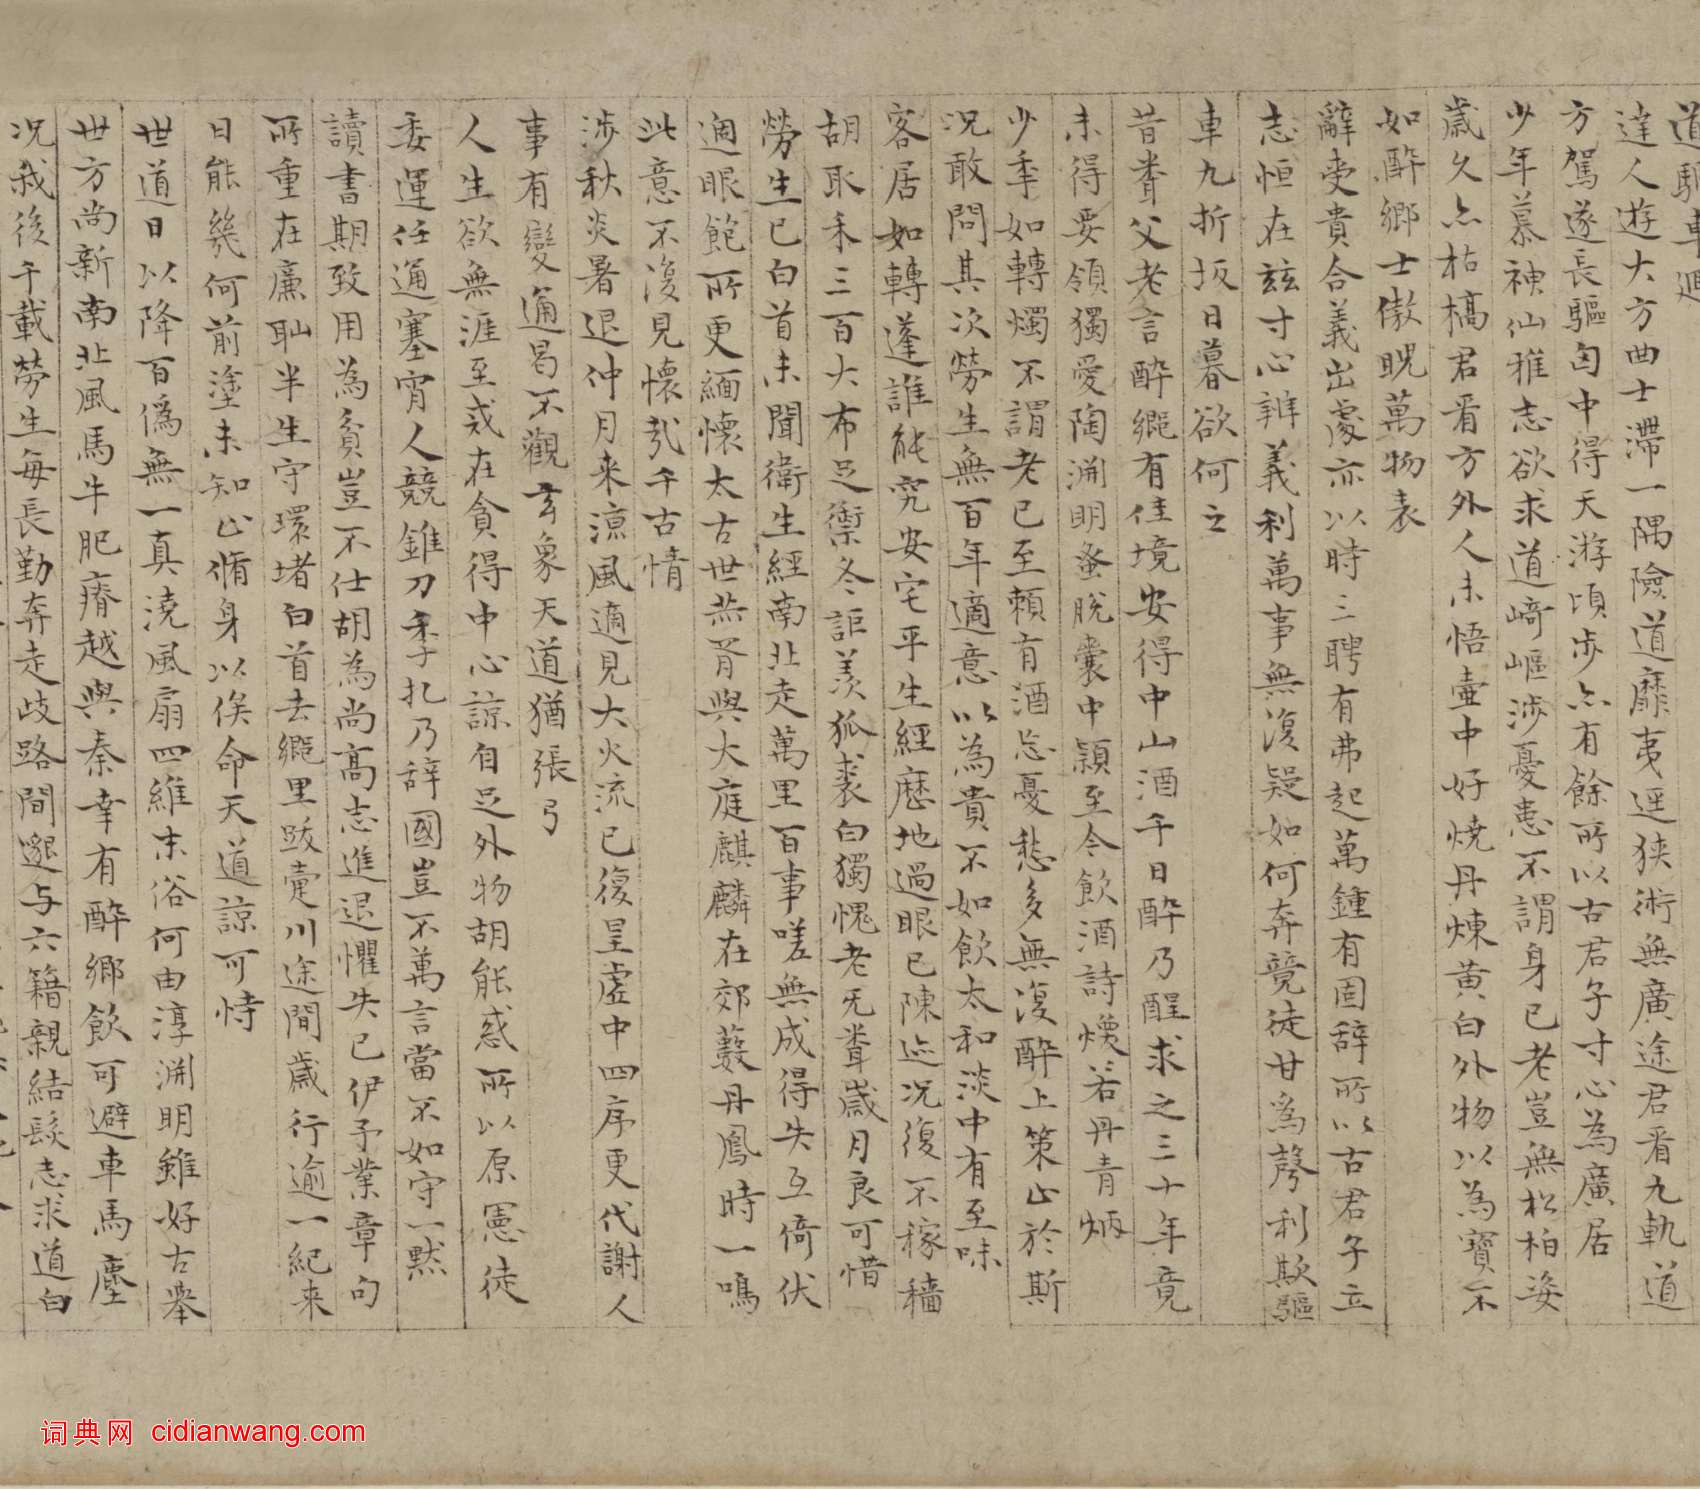 道驅車迴
達人遊大方曲士滯一隅險道靡夷逕狹術無廣途君看九軌道
方駕遂長驅囪中得天游頃步亦有餘所以古君子寸心為廣居
少年慕神仙雅志欲求道崎嶇涉憂患不謂身已老豈無松柏姿
歲久亦枯槁君看方外人未悟壷中好燒丹煉黃白外物以為寶不
如醉鄉士傲睨萬物表
辭受貴合義出處亦以時三聘有弗起萬鍾有固辭所以古君子立
志恒在兹寸心辨義利萬事無復疑如何奔競徒甘為聲利欺驅
車九折坂日暮欲何之
昔賚父老言醉鄉有佳境安得中山酒千日醉乃醒求之三十年竟
未得要領獨愛陶渊明蚤脫囊中穎至今飲酒詩㸌若丹青炳
少年如轉燭不謂老已至賴有酒忘憂愁多無復醉上策止於斯
况敢問其次勞生無百年適意以為貴不如飲太和淡中有至味
客居如轉蓬誰能究安宅平生經歷地過眼已陳迹况復不稼穡
胡取禾三百大布足禦冬詎羡狐裘白獨愧老无聞歲月良可惜
勞生已白首未聞衛生經南北走萬里百事嗟無成得失互倚伏
過眼飽所更緬懷太古世無胥與大庭麒麟在郊藪丹鳳時一鳴
此意不復見懷哉千古情
涉秋炎暑退仲月来涼風適見大火流已復星虛中四序更代謝人
事有變通曷不觀玄象天道猶張弓
人生欲無涯至戒在貪得中心諒自足外物胡能惑所以原憲徒
委運任通塞宵人競錐刀季札乃辞國豈不萬言當不如守一默
讀書期致用為貧豈不仕胡為尚高志進退懼失已伊予業章句
所重在廉恥半生守環堵白首去鄉里跋疐川途間歲行逾一紀来
日能幾何前塗未知止脩身以俟命天道諒可恃
世道日以降百偽無一真澆風扇四維末俗何由淳渊明雖好古舉
世方尚新南北風馬牛肥瘠越與秦幸有醉鄉飲可避車馬塵
况我後千載勞生每長勤奔走歧路間邈与六籍親結髮志求道白